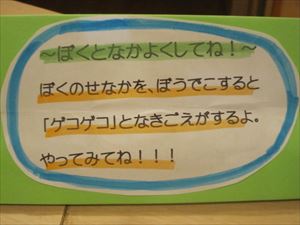 ～ぼくとなかよくしてね！～
ぼくのせなかを、ぼうでこすると
「ゲコゲコ」となきごえがするよ。
やってみてね！！！